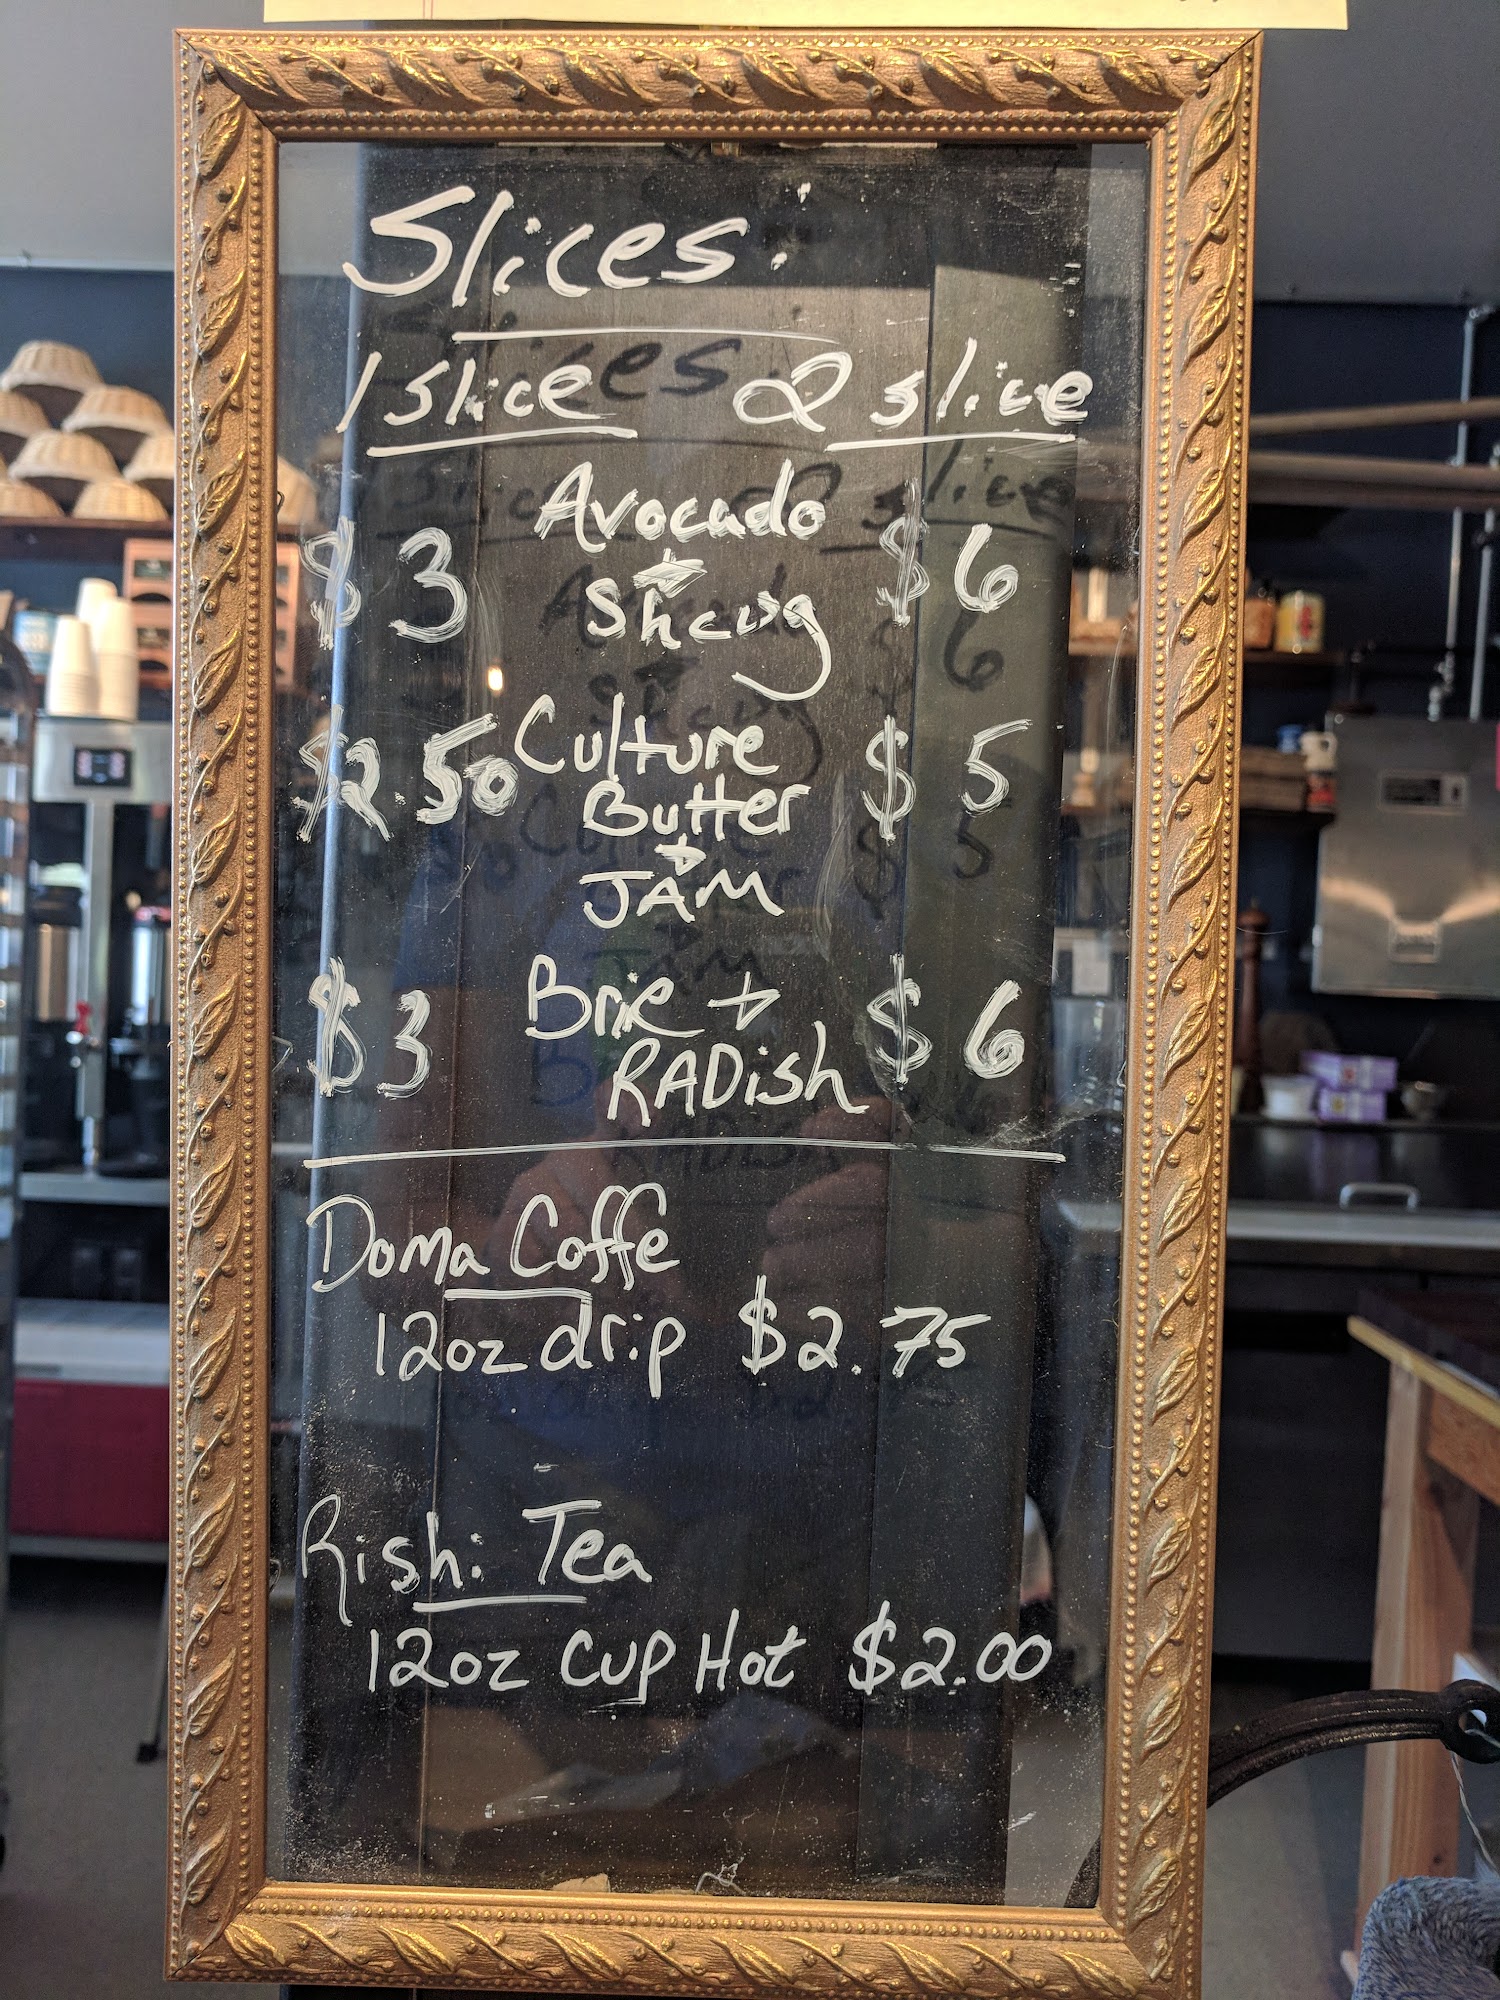 Slices:
1 slice 2 slice
$3 Avocado + Shcug $6
$2.50 Culture Butter + JAM $5
$3 Brie + RADish $6
Doma Coffe
12oz drip $2.75
Rishi Tea
12oz Cup Hot $2.00